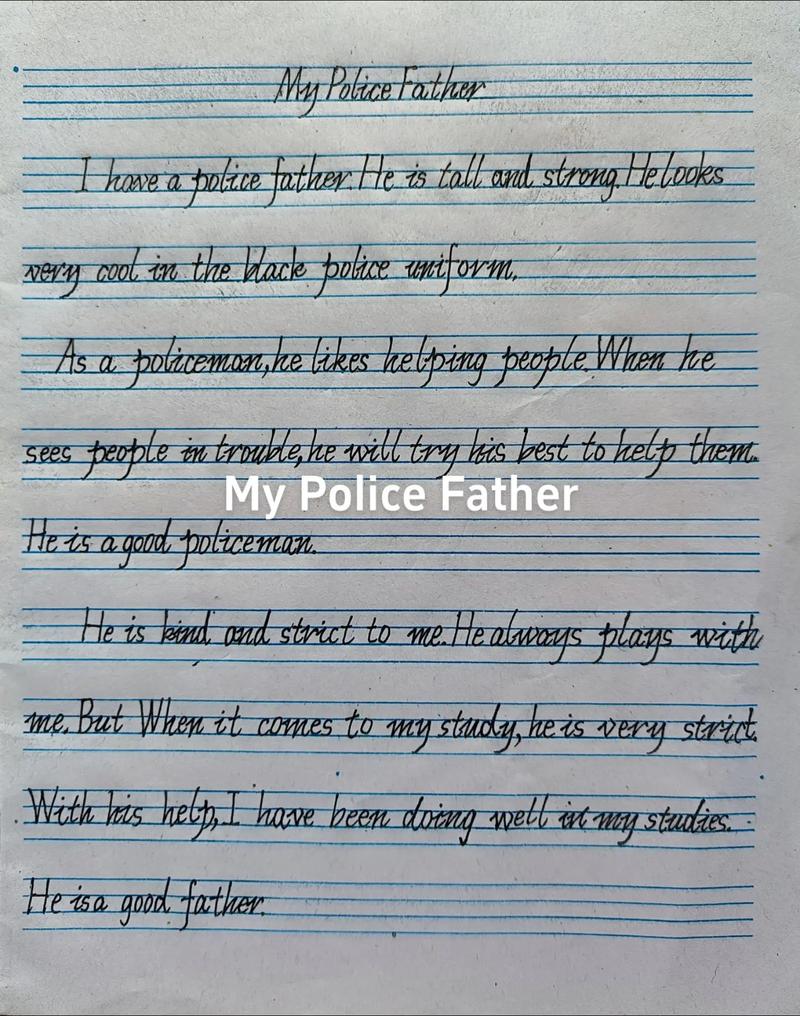 My Police Father
I have a police father. He is tall and strong. He looks
very cool in the black police uniform.
As a policeman, he likes helping people. When he
sees people in trouble, he will try his best to help them.
My Police Father
He is a good policeman.
He is kind and strict to me. He always plays with
me. But When it comes to my study, he is very strict.
With his help, I have been doing well in my studies.
He is a good father.